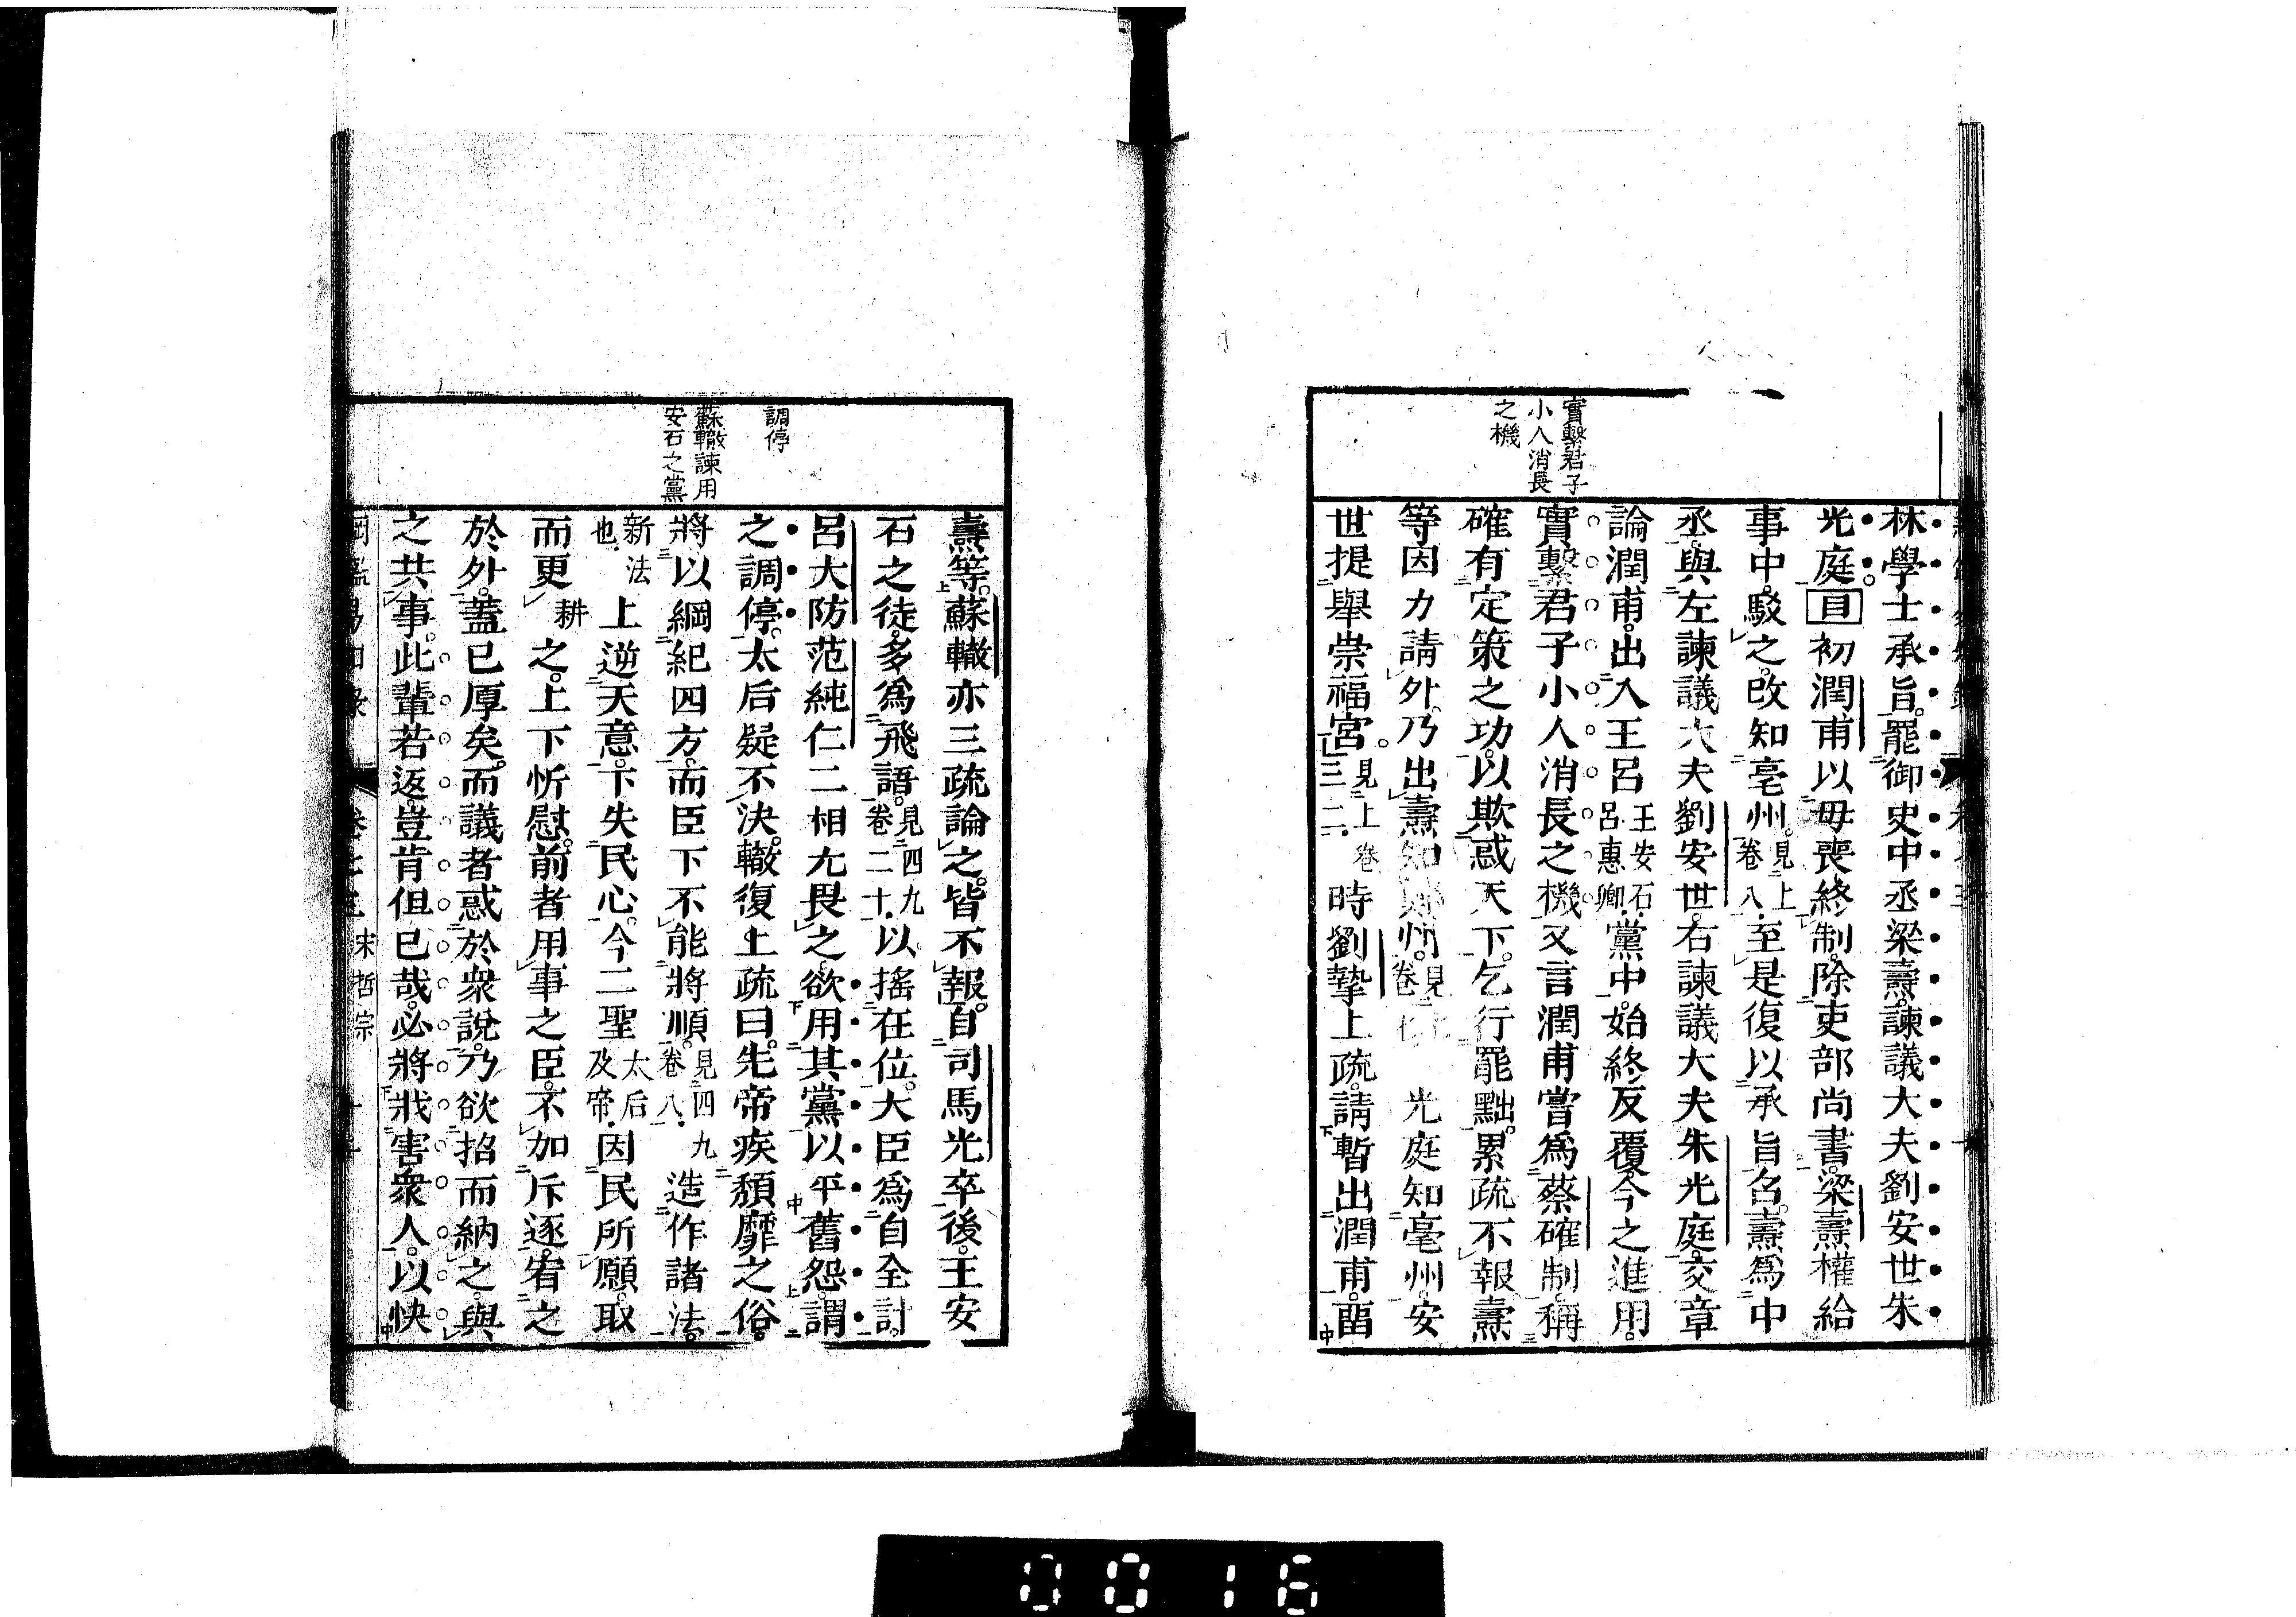 實繫君子
小人消長
之機
林學士承旨。罷御史中丞梁燾。諫議大夫劉安世朱
光庭。目初潤甫以母喪終制。除吏部尚書。梁燾權給
事中。駁之。改知亳州。見上卷八。至是復以承旨召。燾爲中
丞。與左諫議大夫劉安世。右諫議大夫朱光庭。交章
論潤甫。出入王呂王安石。呂惠卿。黨中。始終反覆。今之進用。
實繫君子小人消長之機。又言潤甫嘗爲蔡確制。稱
確有定策之功。以欺惑天下。乞行罷黜。累疏不報。燾
等因力請外。乃出燾知鄭州。見上卷 光庭知亳州。安
世提舉崇福宮。見上卷三二。時劉摯上疏。請暫出潤甫。畱
調停
蘇轍諫用
安石之黨
燾等。蘇轍亦三疏論之。皆不報。自司馬光卒後。王安
石之徒。多爲飛語。見四九卷二十。以搖在位。大臣爲自全計。
呂大防范純仁二相尤畏之。欲用其黨。以平舊怨。謂
之調停。太后疑不決。轍復上疏曰。先帝疾頹靡之俗。
將以綱紀四方。而臣下不能將順。見四九卷八。造作諸法。
新法也。上逆天意。下失民心。今二聖太后及帝。因民所願。取
而更耕之。上下忻慰。前者用事之臣。不加斥逐。宥之
於外。蓋已厚矣。而議者惑於衆說。乃欲招而納之。與
之共事。此輩若返。豈肯但已哉。必將戕害衆人。以快
綱鑑易知錄 卷七十三 宋哲宗 十一
0016